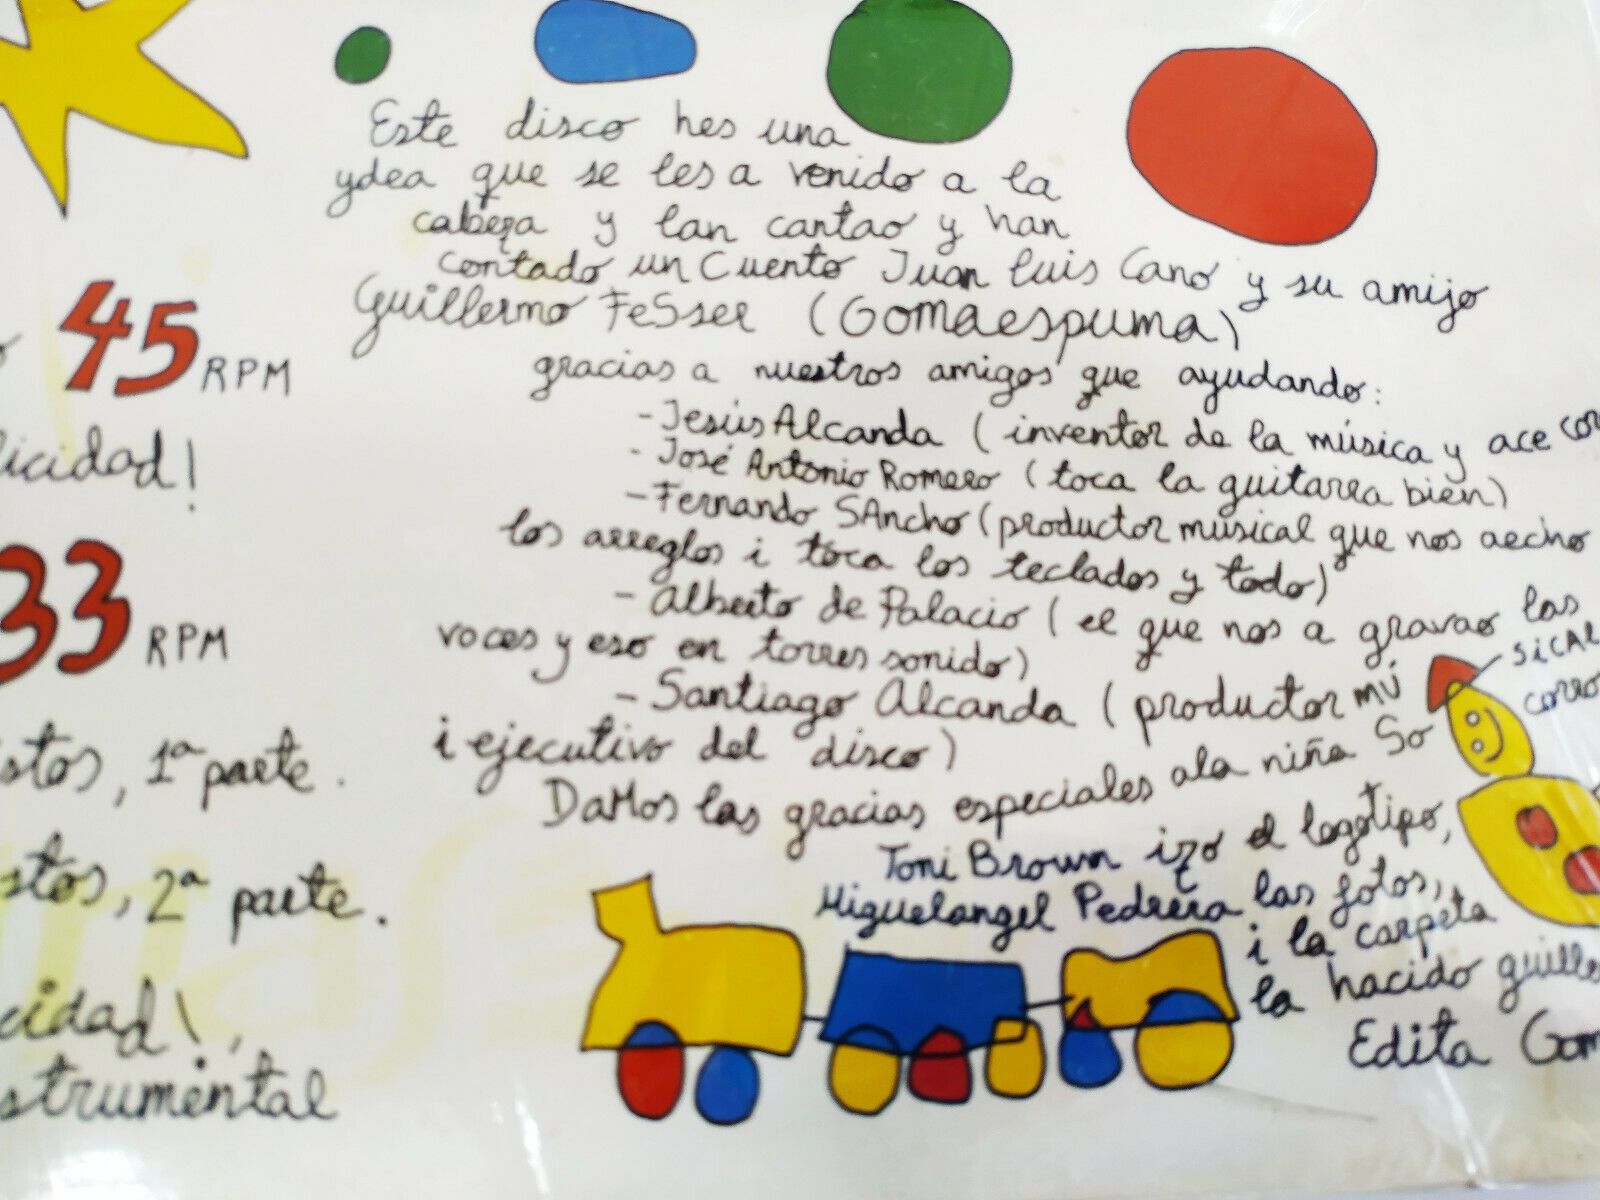 Este disco hes una
ydea que se les a venido a la
cabeza y lan cantao y han
contado un Cuento Juan luis Cano y su amijo
Guillermo FeSser (Gomaespuma)
gracias a nuestros amigos que ayudando:
- Jesús Alcanda (inventor de la música y ace
- José Antonio Romero (toca la guitarra bien)
- Fernando SAncho (productor musical que nos aecho
los arreglos i toca los teclados y todo)
- Alberto de Palacio (el que nos a gravao las
voces y eso en torres sonido)
- Santiago Alcanda (productor mú
i ejecutivo del disco)
DaMos las gracias especiales ala niña So
Toni Brown izo el logotipo,
Miguelangel Pedrera las fotos,
i la carpeta
la hacido guille
Edita Gom
45 RPM
licidad!
33 RPM
stos, 1ª parte.
stos, 2ª parte.
cidad!,
strumental